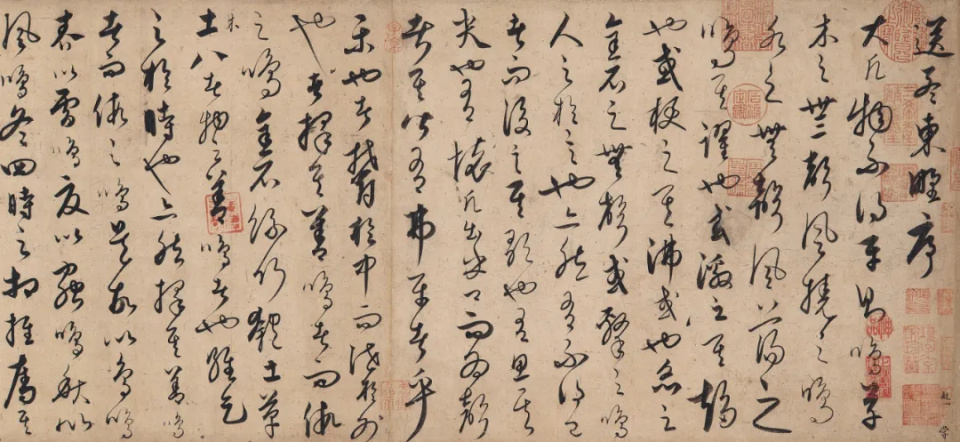 送孟東野序
大凡物不得平則鳴草
木之無聲風撓之鳴
水之無聲風蕩之
鳴其躍也或激之其趨
也或梗之其沸或也炙之
金石之無聲或擊之鳴
人之於言也亦然有不得已
者而後言其歌也有思其
哭也有懷凡出乎口而為聲
者其皆有弗平者乎
樂也者鬱於中而泄於外
也者擇其善鳴者而假
之鳴金石絲竹匏土革
土木八者物之善鳴者也維天
之於時也亦然擇其善鳴
者而假之鳴是故以鳥鳴
春以雷鳴夏以蟲鳴秋以
風鳴冬四時之相推奪其